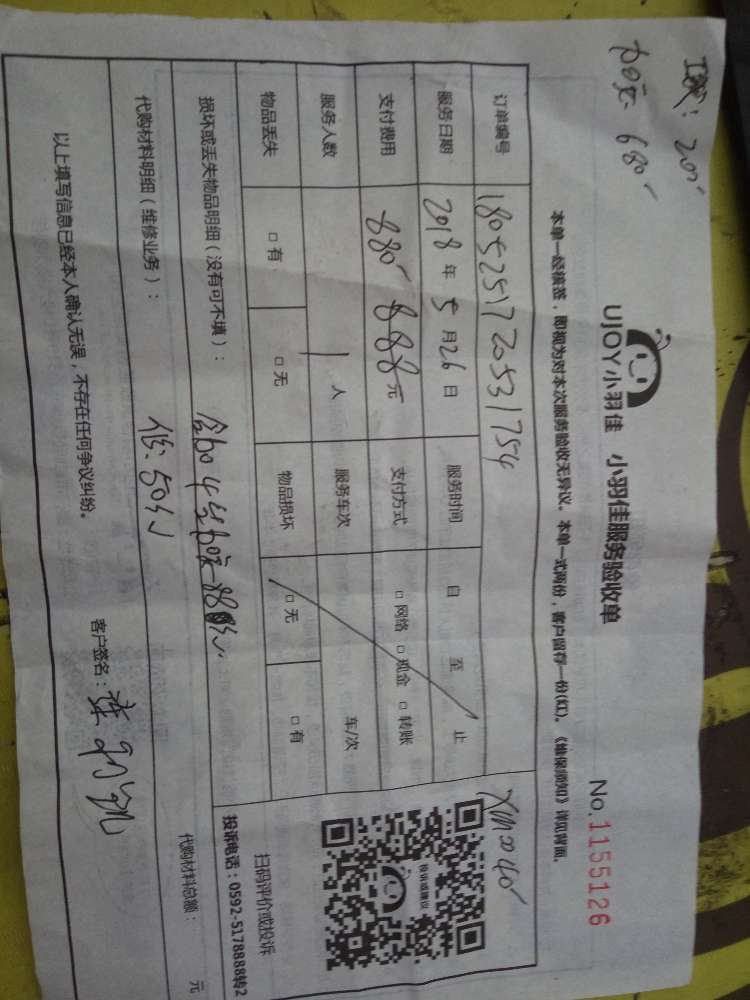 工时: 200
UJOY小羽佳 小羽佳服务验收单
No.1155126
本单一经核签，即视为对本次服务验收无异议。本单一式两份，客户留存一份(红)。《维保须知》详见背面。
订单编号 1805251720531754
服务日期 2018年5月26日 服务时间 自 至 止
支付费用 880 888元 支付方式 □网络 □现金 □转账
服务人数 1人 服务车次 车/次
物品丢失 □有 □无 物品损坏 □无 □有
损坏或丢失物品明细（没有可不填）：
代购材料明细（维修业务）：
代购材料总额： 元
以上填写信息已经本人确认无误，不存在任何争议纠纷。
客户签名：
投诉或建议
扫码评价或投诉
投诉电话：0592-5178888转2